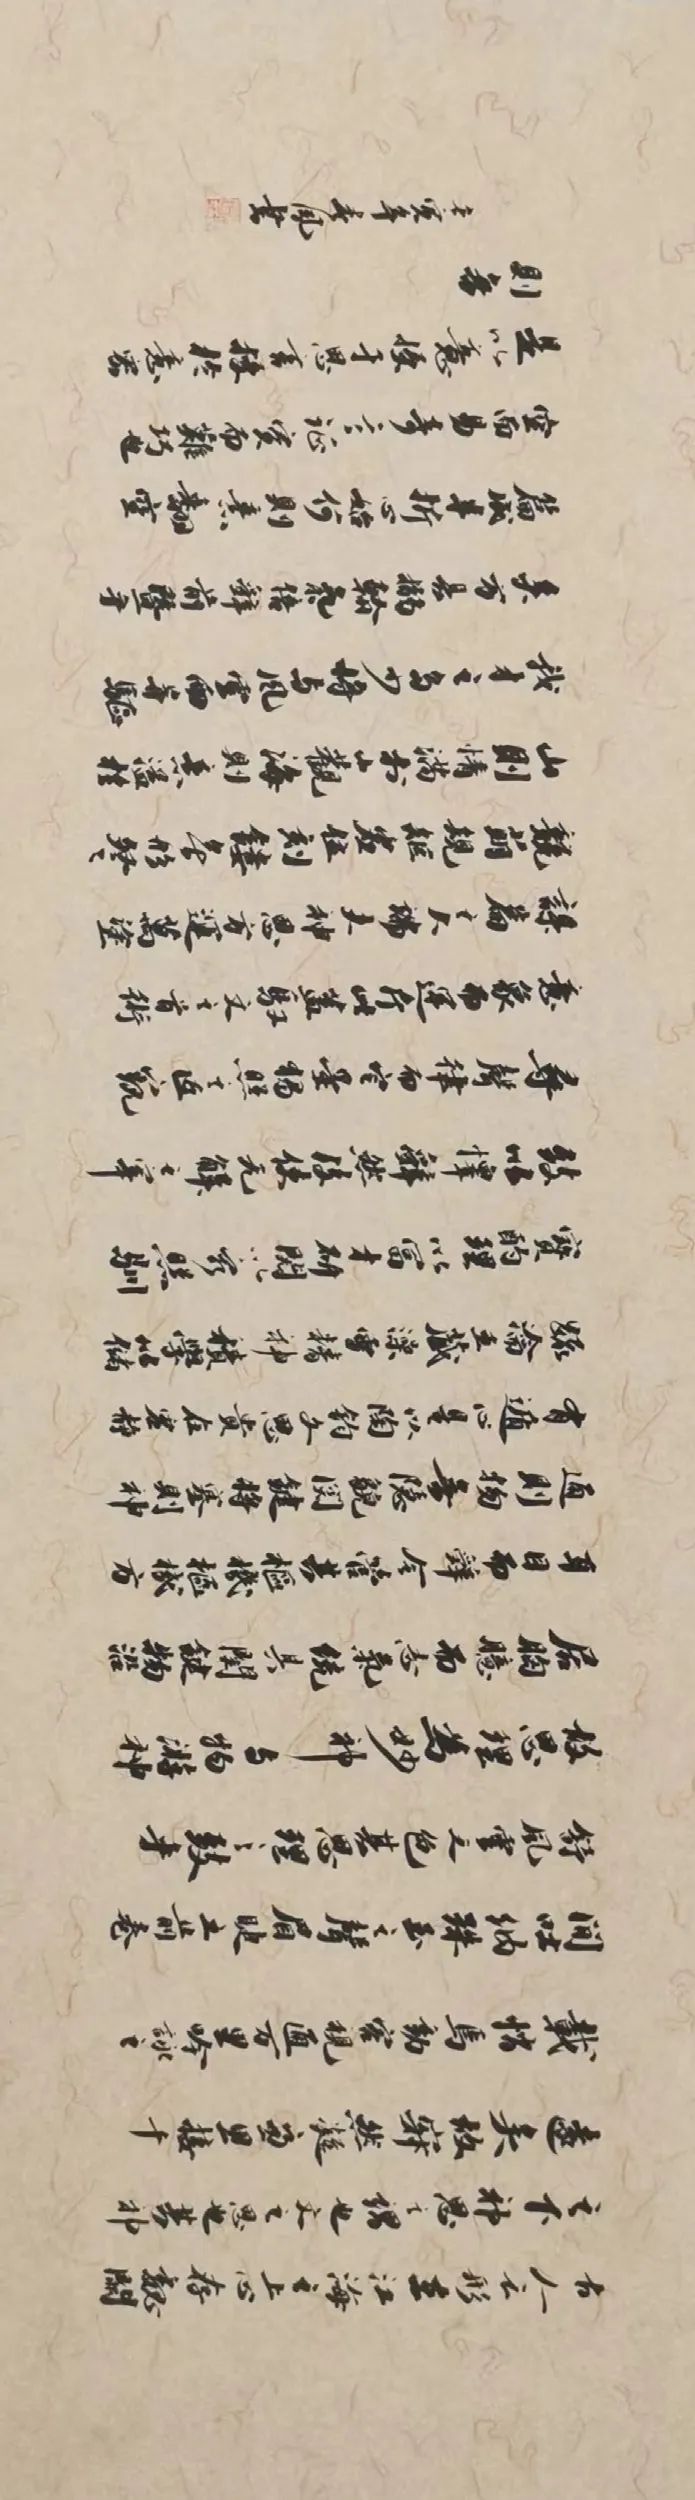 古人云形在江海之上心存魏闕
之下神思之謂也文之思也其神
遠矣故寂然凝慮思接千
載悄焉動容視通萬里吟詠之
間吐納珠玉之聲眉睫之前卷
舒風雲之色其思理之致乎
故思理為妙神與物游神
居胸臆而志氣統其關鍵物沿
耳目而辭令管其樞機樞機方
通則物無隱貌関鍵將塞則神
有遁心是以陶鈞文思貴在虛靜
疏瀹五藏澡雪精神積學以儲
寶酌理以富才研閱以窮照馴
致以懌辭然後使元解之宰
尋聲律而定墨獨照之匠窺
意象而運斤此蓋馭文之首術
謀篇之大端夫神思方運萬塗
競萌規矩虛位刻鏤無形登
山則情滿於山觀海則意溢於
我才之多少將與風雲而並驅
矣方其搦翰氣倍辭前暨乎
篇成半折心始何則意翻
空而易奇言征實而難巧也
是以意授于思言授於意密
則無
壬寅年風書